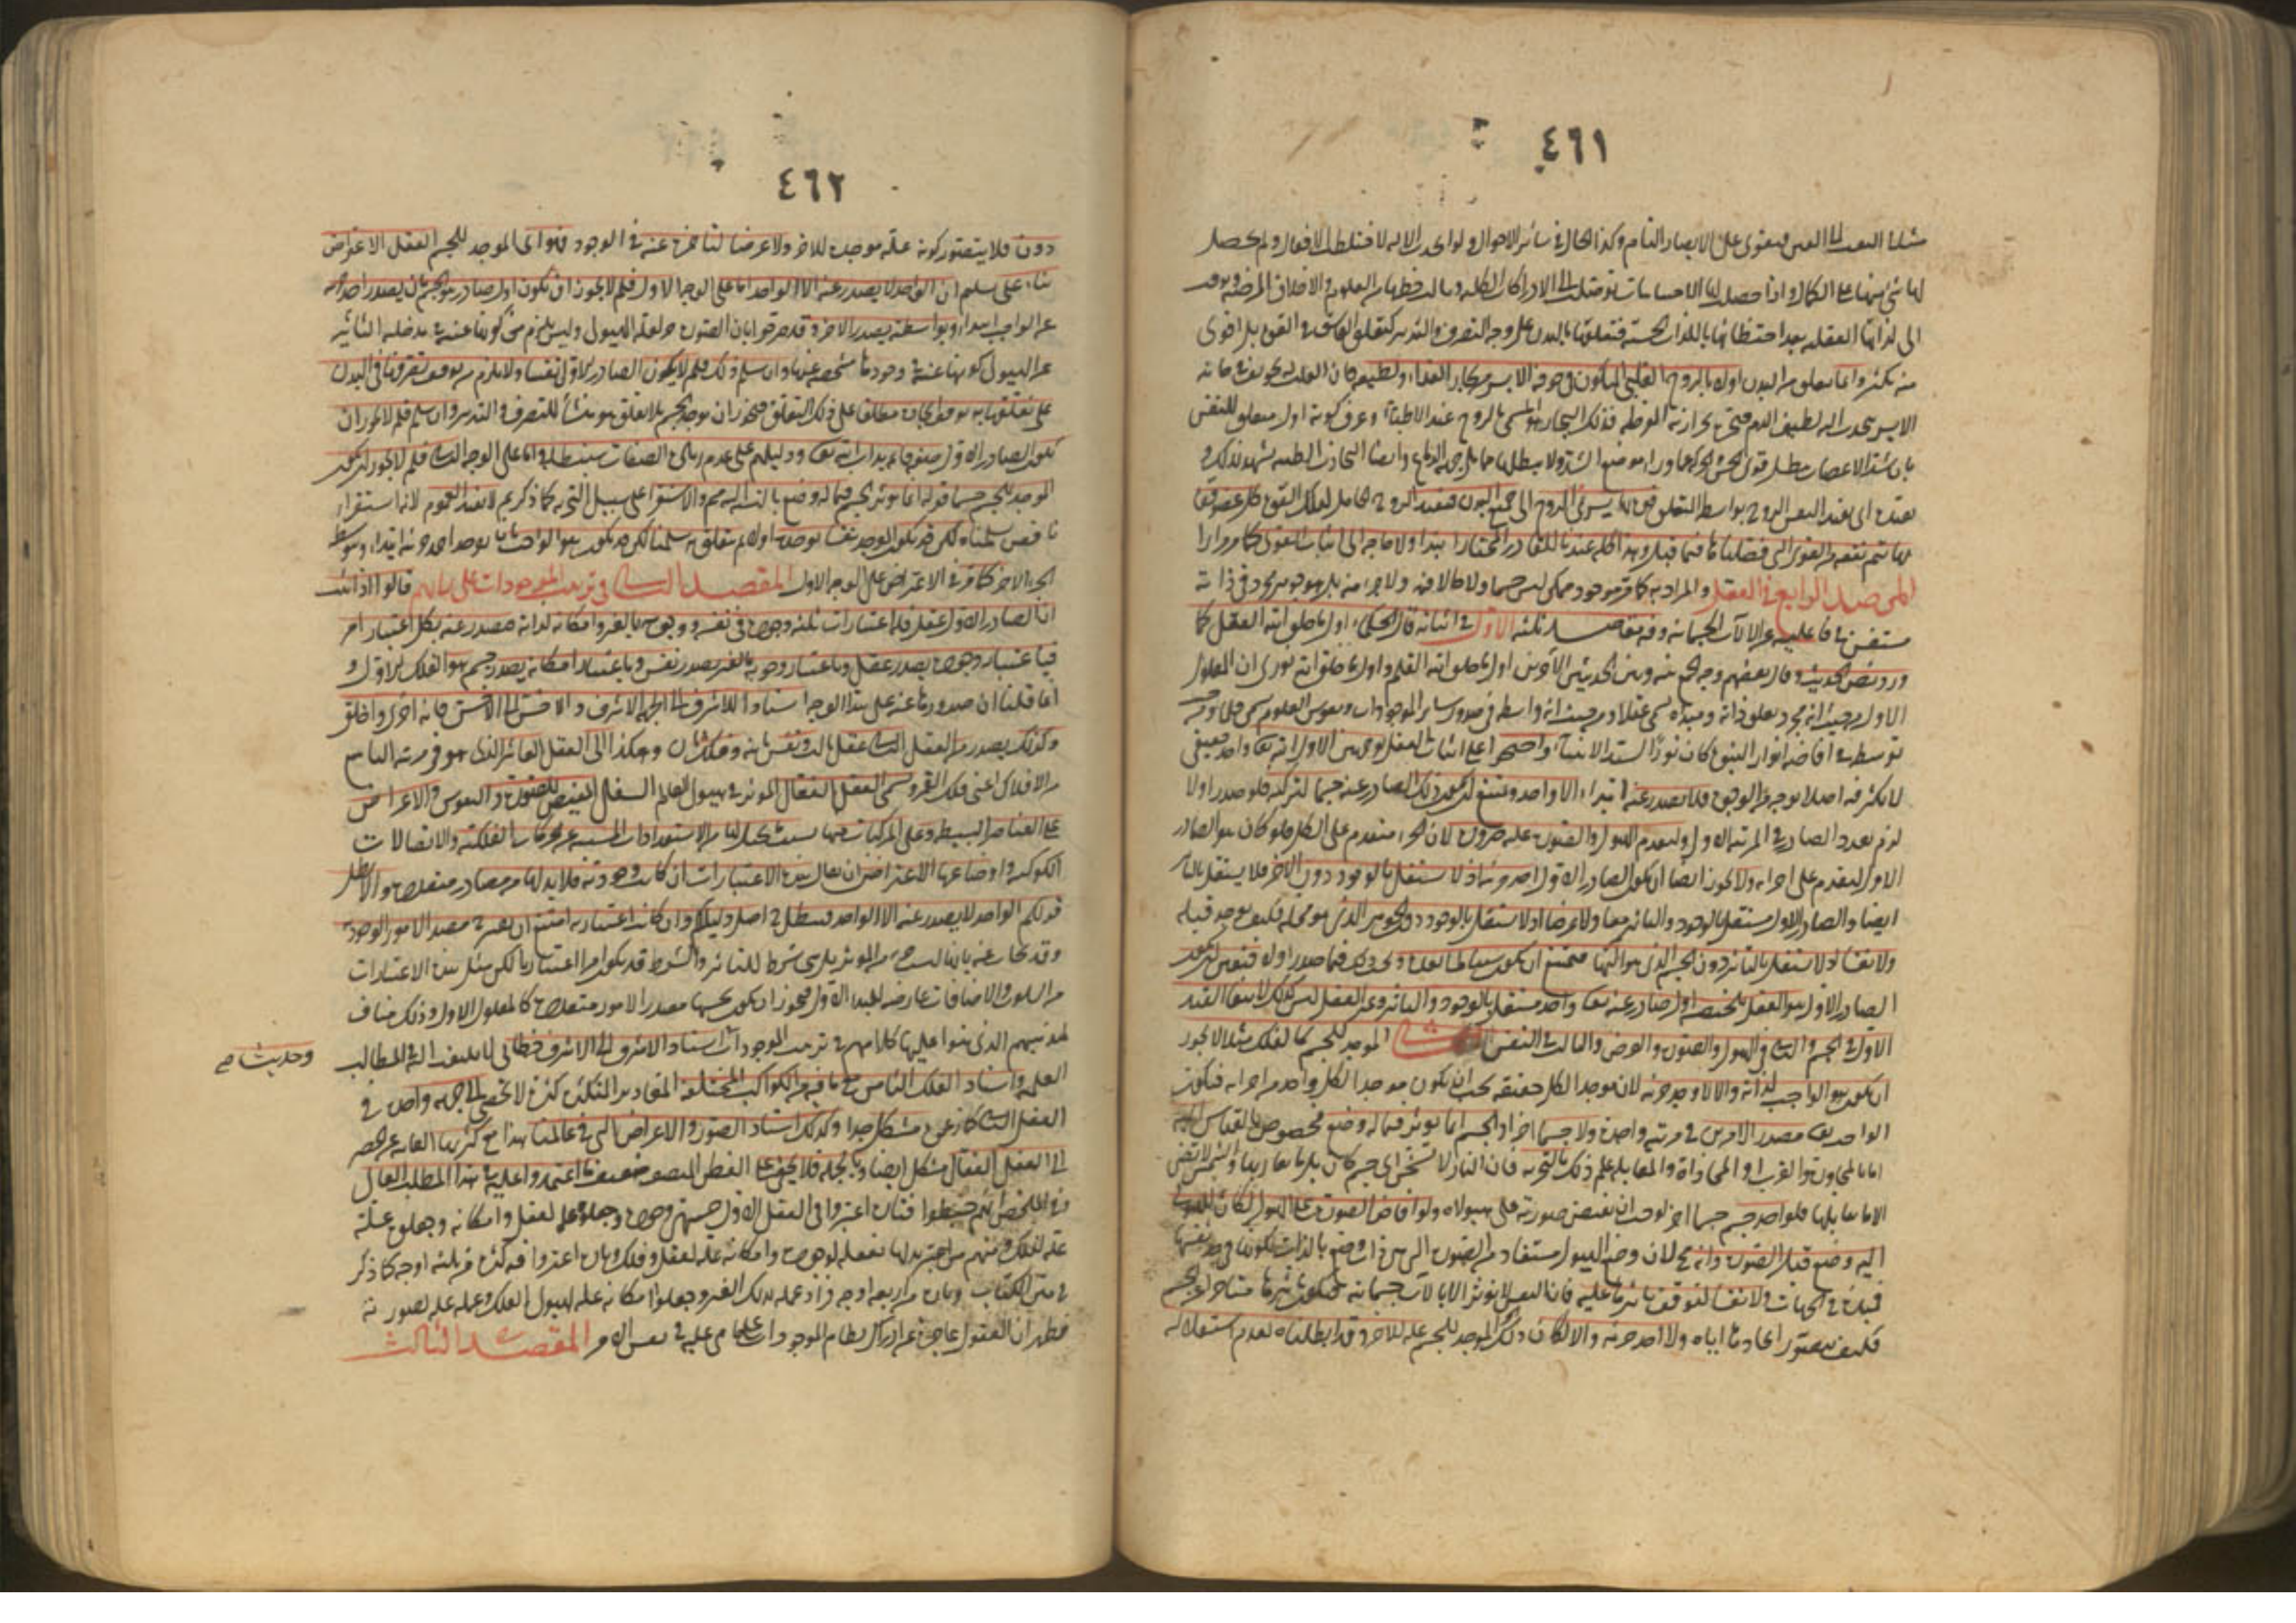 ٤٦١
مثلا التفت الى العين فيقوى على الابصار التام وكذا الحال في سائر الاحوال ولو اتحدت الآلة لاختلطت الافعال ولم يحصل
لها شئ منها على الكمال واذا حصلت لها الاحساسات توصلت الى الادراكات الكلية
الى لذاتها العقلية بعد احتظائها باللذات الحسية فتعلقها بالبدن على وجه التصرف والتدبير كتعلق العاشق في القوة بل اقوى
منه بكثير وانما تتعلق من البدن اولا بالروح القلبي المتكون في جوفه الايسر من بخار الغذاء ولطيفه فان القلب له تجويف في جانبه
الايسر ينجذب اليه لطيف الدم فيتبخر بحرارته المفرطة فذلك البخار هو المسمى بالروح عند الاطباء وعرف كونه اول متعلق للنفس
بان شد الاعصاب يبطل قوى الحس والحركة عما وراء موضع الشد ولا يبطلها مما يلي جهة الدماغ وايضا التجارب الطبية تشهد بذلك و
تفيده اى تفيد النفس الروح بواسطة التعلق قوة بها يسري الروح الى جميع البدن فتفيد الروح الحامل لتلك القوة كل عضو قوة
بها يتم نفعه من القوى التي فصلناها فيما قبل وهذا كله عندنا للقادر المختار ابتداء ولا حاجة الى اثبات القوى كما مر مرارا
المرصد الرابع في العقل والمراد به كما مر موجود ممكن ليس جسما ولا حالا فيه ولا جزءا منه بل هو جوهر مجرد في ذاته
مستغن في فاعليته عن الآلات الجسمانية وفيه مقاصد ثلثة الاول في اثباته قال الحكماء اول ما خلق الله العقل كما
ورد بنص الحديث وقال بعضهم وجه الجمع بينه وبين الحديثين الآخرين اول ما خلق الله القلم واول ما خلق الله نوري ان المعلول
الاول من حيث انه مجرد يعقل ذاته ومبدأه يسمى عقلا ومن حيث انه واسطة في صدور سائر الموجودات ونقوش العلوم يسمى قلما ومن حيث
توسطه في افاضة انوار النبوة كان نورا لسيد الانبياء واحتجوا على اثبات العقل بوجهين الاول الله تعالى واحد حقيقي
لا تكثر فيه اصلا بوجه من الوجوه فلا يصدر عنه ابتداء الا واحد ويمتنع ان يكون ذلك الصادر عنه جسما لتركبه فلو صدر اولا
لزم تعدد الصادر في المرتبة الاولى ولتقدم الهيولى والصورة عليه ضرورة لان الجزء متقدم على الكل فلو كان هو الصادر
الاول لتقدم على اجزائه ولا يجوز ايضا ان يكون الصادر الاول احد جزئيه اذ لا يستقل بالوجود دون الآخر فلا يستقل بالتأثير
ايضا والصادر الاول مستقل بالوجود والتأثير معا ولا عرضا اذ لا يستقل بالوجود دون الجوهر الذي هو محله فكيف يوجد قبله
ولا نفسا اذ لا تستقل بالتأثير دون الجسم الذي هو آلتها فيمتنع ان يكون سببا لما بعده ويجب ذلك فيما صدر اولا فتعين ان يكون
الصادر الاول هو العقل تلخيصه اول صادر عنه تعالى واحد مستقل بالوجود والتأثير وغير العقل ليس كذلك لانتفاء القيد
الاول في الجسم والثاني في الهيولى والصورة والعرض والثالث في النفس الثاني الموجد للجسم كالفلك مثلا لا يجوز
ان يكون هو الواجب لذاته والا لاوجد جزئيه لان موجد الكل حقيقة يجب ان يكون موجدا لكل واحد من اجزائه فيكون
الواحد تعالى مصدر الامرين في مرتبة واحدة ولا جسما آخر اذ الجسم انما يؤثر فيما له وضع مخصوص بالقياس اليه
اما بالمجاورة والقرب او المحاذاة والمقابلة علم ذلك بالتجربة فان النار لا تسخن اي جسم كان بل ما يقاربها والشمس لا تضئ
الا ما يقابلها فلو اوجد جسم جسما آخر لوجب ان يفيض صورته على هيولاه ولو افاض الصورة على الهيولى لكان للهيولى
اليه وضع قبل الصورة وانه مح لان وضع الهيولى مستفاد من الصورة التي هي ذات وضع بالذات
ولا نفسا لتوقف تأثيرها عليه فان النفس لا تؤثر الا بآلات جسمانية فيكون تأثيرها متأخرا عن الجسم
فكيف يتصور ايجادها اياه ولا احد جزئيه والا لكان ذلك الموجد للجسم علة للآخر وقد ابطلناه لعدم استقلاله
٤٦٢
دونه فلا يتصور كونه علة موجدة للآخر ولا عرضا لتأخره عنه في الوجود فهو اى الموجد للجسم العقل الاعتراض
بناء على تسليم ان الواحد لا يصدر عنه الا الواحد اما على الوجه الاول فلم لا يجوز ان يكون اول صادر هو الجسم بان يصدر احد جزئيه
عن الواجب ابتداء وبواسطته يصدر الآخر وقد صرحوا بان الصورة جزء لعلة الهيولى وليس يلزم من
عن الهيولى كونها غنية في وجودها مشخصة عنها وان سلم ذلك فلم لا يكون الصادر الاول نفسا ولا يلزم من توقف تصرفها في البدن
على تعلقها به توقف ايجادها مطلقا على ذلك التعلق فيجوز ان توجد الجسم بلا تعلق هو منشأ للتصرف والتدبير وان سلم فلم لا يجوز ان
يكون الصادر الاول صفة قائمة بذات الله تعالى ودليلهم على عدم زيادة الصفات سنبطله واما على الوجه الثاني فلم لا يجوز ان يكون
الموجد للجسم جسما قوله انما يؤثر الجسم فيما له وضع بالنسبة اليه مم والاستقراء على سبيل التجربة كما ذكرتم لا يفيد العموم لانه استقراء
ناقص سلمناه لكن قد يكون الموجد نفسا يوجده اولا ثم يتعلق به سلمنا لكن قد يكون هو الواجب بان يوجد احد جزئيه ابتداء وبتوسطه
الجزء الآخر كما مر في الاعتراض على الوجه الاول المقصد الثاني في ترتيب الموجودات على رأيهم قالوا اذا ثبت
ان الصادر الاول عقل فله اعتبارات ثلثة وجوده في نفسه ووجوبه بالغير وامكانه لذاته فيصدر عنه بكل اعتبار امر
فباعتبار وجوده يصدر عقل وباعتبار وجوبه بالغير يصدر نفس وباعتبار امكانه يصدر جسم هو الفلك الاول و
انما قلنا ان صدورها عنه على هذا الوجه استنادا للاشرف الى الجهة الاشرف والاخس الى الاخس فانه احرى واخلق
وكذلك يصدر من العقل الثاني عقل ثالث ونفس ثانية وفلك ثان وهكذا الى العقل العاشر الذي هو في مرتبة التاسع
من الافلاك اعنى فلك القمر ويسمى العقل الفعال المؤثر في هيولى العالم السفلي المفيض للصور والنفوس والاعراض
على العناصر البسيطة وعلى المركبات منها بسبب ما يحصل لها من الاستعدادات المسببة عن الحركات الفلكية والاتصالات
الكوكبية واوضاعها الاعتراض ان يقال هذه الاعتبارات ان كانت وجودية فلا بد لها من مصادر متعددة والا بطل
قولكم الواحد لا يصدر عنه الا الواحد فبطل اصل دليلكم وان كانت اعتبارية امتنع ان تصير جزء مصدر الامور الوجودية
وقد يجاب عنه بانها ليست جزءا من المؤثر بل هي شرط للتأثير والشرط قد يكون امرا اعتباريا لكن مثل هذه الاعتبارات
من السلوب والاضافات عارضة للمبدأ الاول فيجوز ان يكون بحسبها مصدرا لامور متعددة كالمعلول الاول وذلك مناف
لمذهبهم الذي بنوا عليها كلامهم في ترتيب الموجودات اسناد الاشرف الى الاشرف خطابي لا يلتفت اليه في المطالب
وحديث صح
العلمية واسناد الفلك الثامن مع ما فيه من الكواكب المختلفة المقادير المتكثرة كثرة لا تحصى الى جهة واحدة في
العقل الثاني كما زعموه مشكل جدا وكذلك اسناد الصور والاعراض التي في عالمنا هذا مع كثرتها الفائتة عن الحصر
الى العقل الفعال مشكل ايضا وبالجملة فلا يخفى على الفطن المنصف ضعف ما اعتمدوا عليه في هذا المطلب العالي
وفي الملخص انهم خبطوا فتارة اعتبروا في العقل الاول جهتين وجوده وجعلوه علة لعقل وامكانه وجعلوه علة
لفلك ومنهم من اعتبر بدلهما تعقله لوجوده وامكانه علة لعقل وفلك وتارة اعتبروا فيه كثرة من ثلثة اوجه كما ذكر
في متن الكتاب وتارة من اربعة اوجه فزادوا علمه بذلك الغير وجعلوا امكانه علة لهيولى الفلك وعلمه علة لصورته
فظهر ان العقول عاجزة عن ادراك نظام الموجودات على ما هي عليه في نفس الامر المقصد الثالث